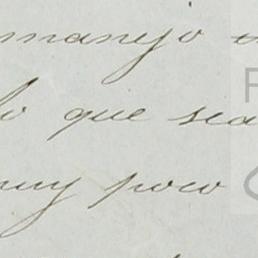 manejo
lo que sea
muy poco